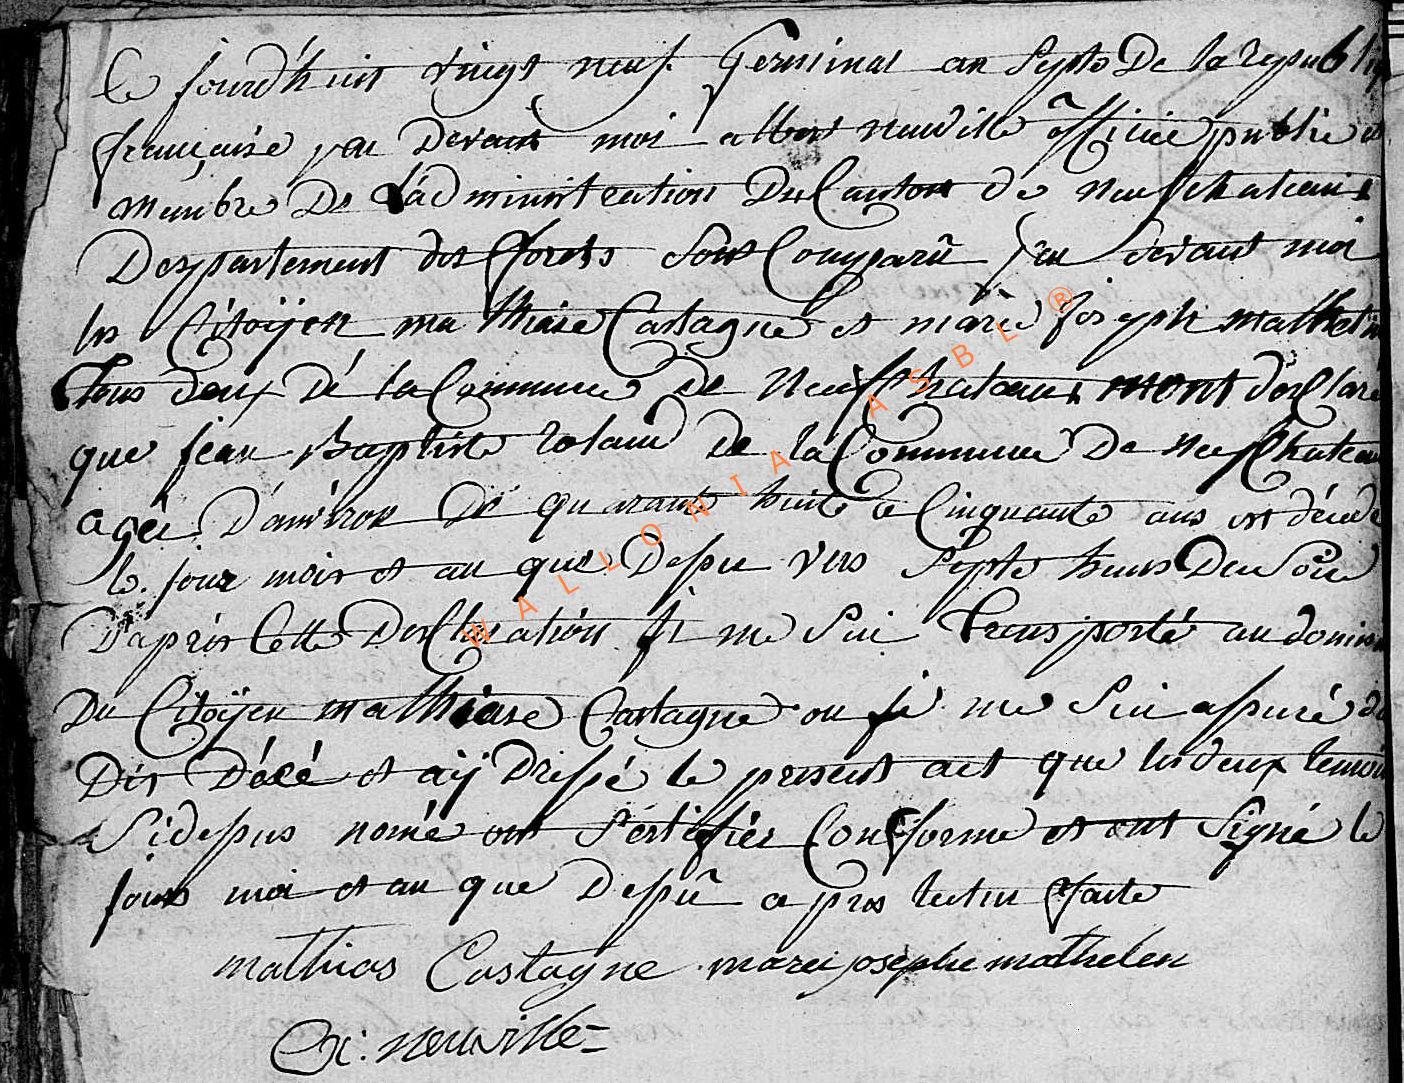 Ce jourd'huit vingt neuf Germinal an septe De la republiq
française par Devant moi albert neuville officiée publie et
membre De L'adminitration Du Canton de neufchateaux
Despartement des forets Sont Comparû par devant moi
les Citoÿen mathiase Castagne et marie joseph mathelin
tous deux dé la Commune de Neufchateaux mont desClaré
que jean Baptiste roland de la Commune De neufchateau
agée D'anviron De quarante huite a Cinquante ans est décédé
le jour mois et an que Desu vers septe heurs Deu Soire
D'aprés Cette DesClaration je me Sui transporté au domicil
Du Citoÿen mathiase Castagne ou je me Sui assuré du
Dis Décé et aÿ Dressé le present act que les deux temoin
Sidessus nomé ont Sertifiér Conforme et ont Signé le
jours moi et an que Dessû apres lectur faite
mathias Castagne marei josephe mathelen
neuville
WALLONIA ASBL ®